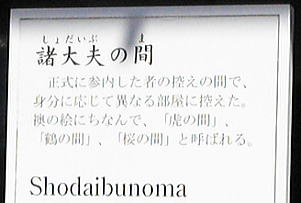 しょだいぶ ま
諸大夫の間
正式に参内した者の控えの間で、
身分に応じて異なる部屋に控えた。
襖の絵にちなんで、「虎の間」、
「鶴の間」、「桜の間」と呼ばれる。
Shodaibunoma